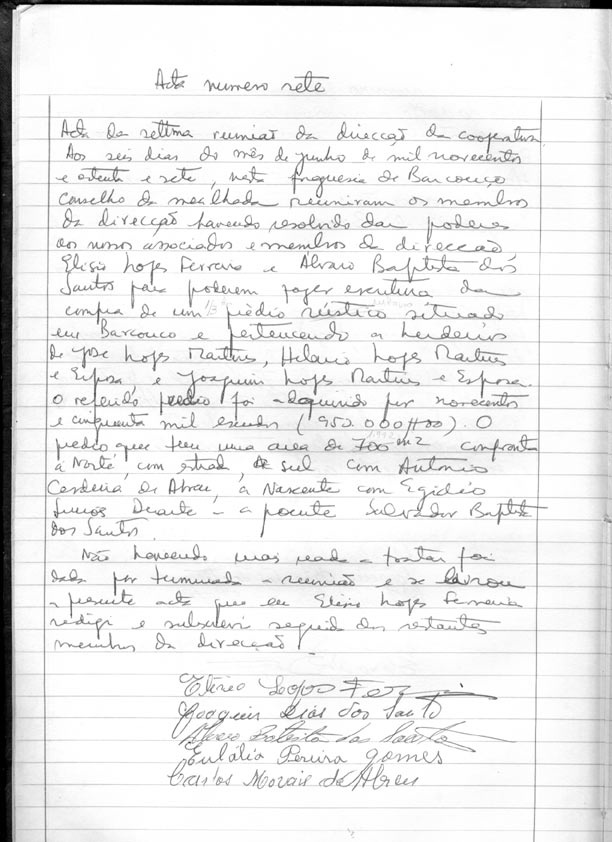 Acta numero sete
Acta da settima reunião da direcção da cooperativa.
Aos seis dias do mês de junho de mil novecentos
e oitenta e sete, nesta freguesia de Barcouço
conselho da mealhada reuniram os membros
da direcção havendo resolvido dar poderes
aos nossos associados e membros da direcção
Elisio Lopes Ferreira e Alvaro Baptista dos
Santos para poderem fazer escritura da
compra de um 1/3 prédio rústico situado
em Barcouço e pertencendo a herdeiros
de José Lopes Martins, Hilario Lopes Martins
e Esposa, e Joaquim Lopes Martins e Esposa.
O referido predio foi adquirido por novecentos
e cinquenta mil escudos (950.000$00). O
predio que tem uma area de 700 m2 confronta
à Norte, com estrada, sul com António
Cerdeira de Abreu, à Nascente com Egidio
Duarte - a poente Salvador Baptista
dos Santos.
Não havendo mais nada a tratar foi
dada por terminada a reunião e se lavrou
a presente acta que eu Elisio Lopes Ferreira
redigi e subscrevi seguido dos restantes
membros da direcção.
Elisio Lopes
Joaquim Dias dos Santos
Alvaro Batista dos Santos
Eulália Pereira Gomes
Carlos Morais de Abreu